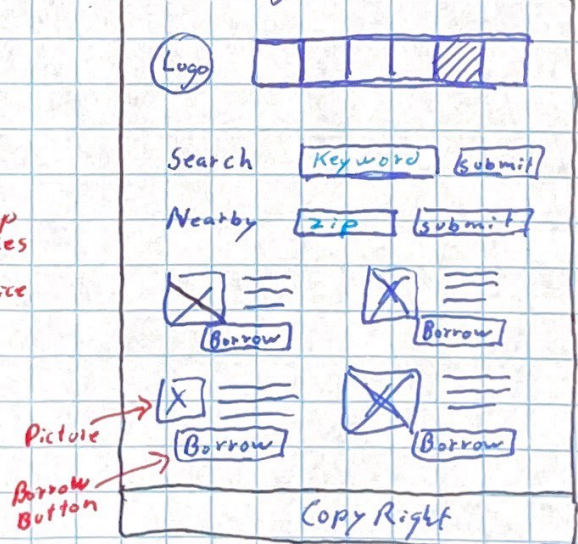 Logo
Search Keyword submit
Nearby zip submit
Borrow Borrow
Picture
Borrow Borrow
Borrow
Button
Copy Right